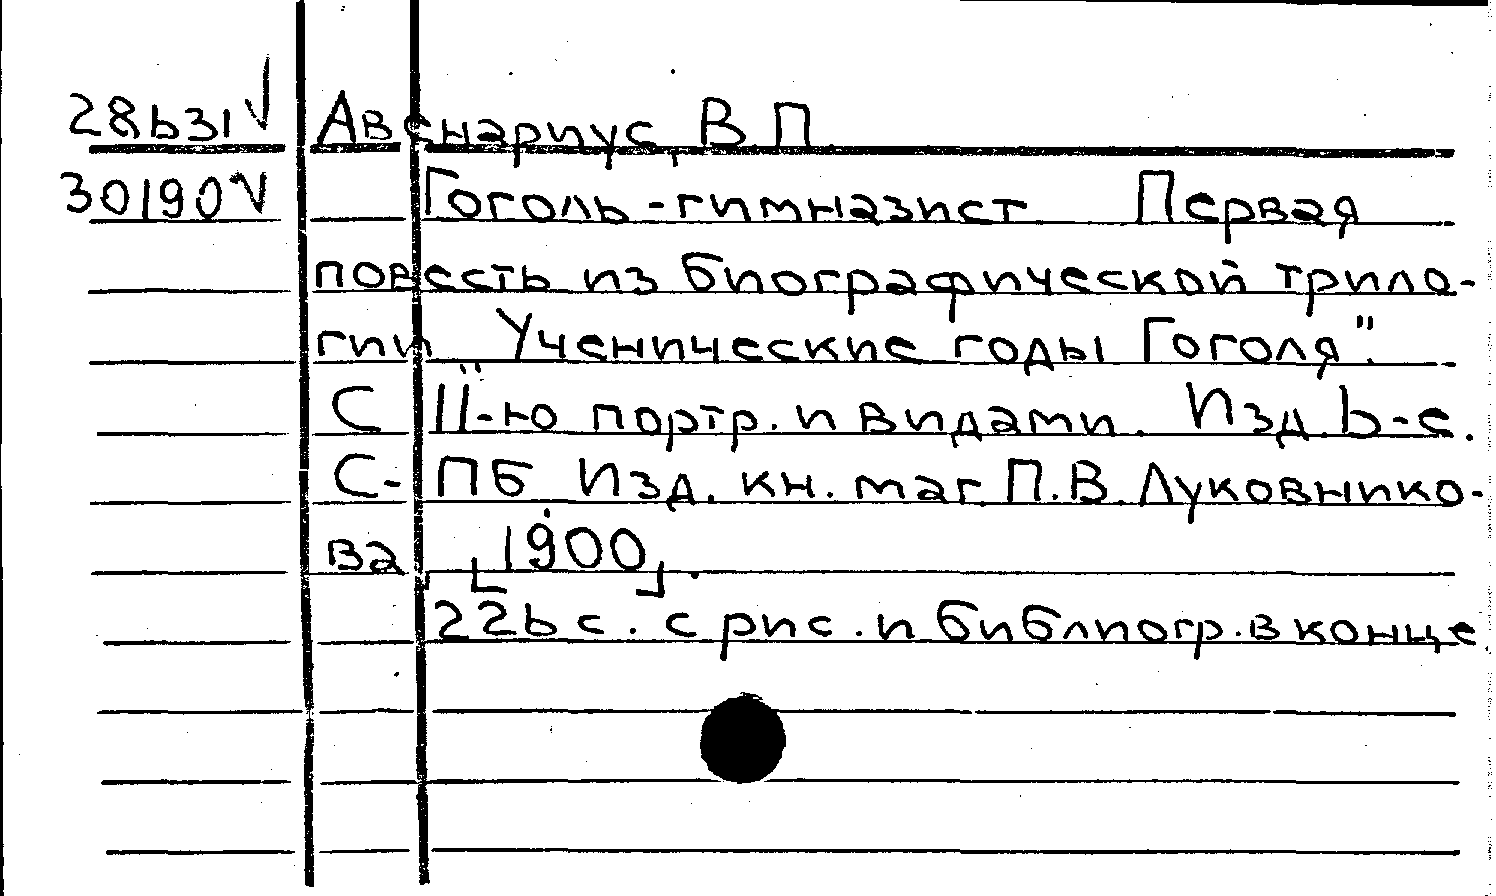 28631 √ Авенариус, В П
30190 √ Гоголь-гимназист Первая
повесть из биографической трило-
гии "Ученические годы Гоголя".
С 11-ю портр. и видами. Изд. 6-е.
С-ПБ Изд. кн. маг П.В. Луковнико-
ва [1900].
226 с. с рис. и библиогр. в конце.